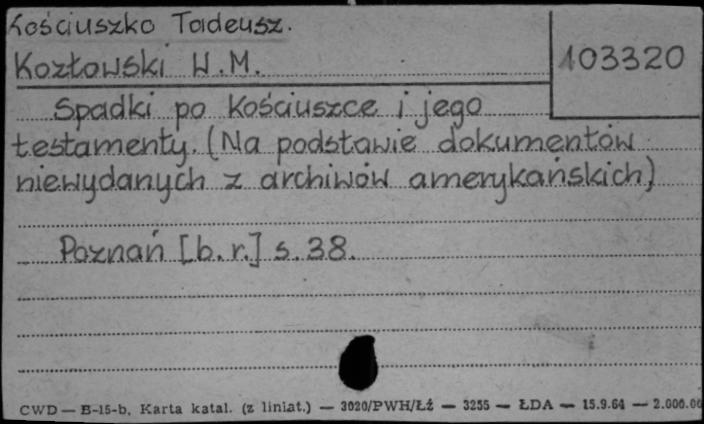 Kościuszko Tadeusz.
Kozłowski W.M.
103320
Spadki po Kościuszce i jego
testamenty. (Na podstawie dokumentów
niewydanych z archiwów amerykańskich)
Poznań [b.r.] s. 38.
CWD — B-15-b, Karta katal. (z liniat.) — 3020/PWH/Łź — 3255 — ŁDA — 15.9.64 — 2.000.00